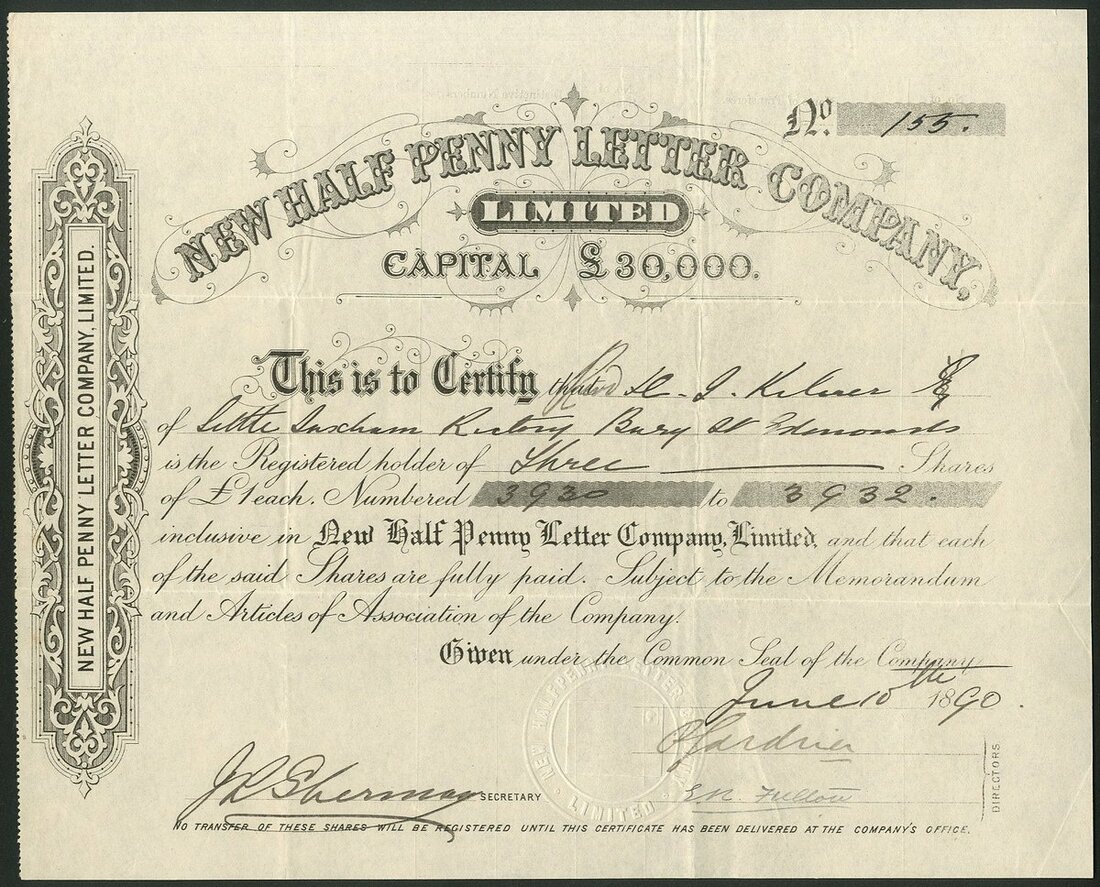 Nº 155.
NEW HALF PENNY LETTER COMPANY,
LIMITED
CAPITAL £30,000.
NEW HALF PENNY LETTER COMPANY, LIMITED.
This is to Certify that
of Little Saxham Rectory Bury St Edmonds
is the Registered holder of Three Shares
of £1 each. Numbered 3930 to 3932.
inclusive in New Half Penny Letter Company, Limited, and that each
of the said Shares are fully paid. Subject to the Memorandum
and Articles of Association of the Company.
Given under the Common Seal of the Company
June 10th 1890.
NEW HALFPENNY LETTER
LIMITED
SECRETARY
DIRECTORS
NO TRANSFER OF THESE SHARES WILL BE REGISTERED UNTIL THIS CERTIFICATE HAS BEEN DELIVERED AT THE COMPANY'S OFFICE.